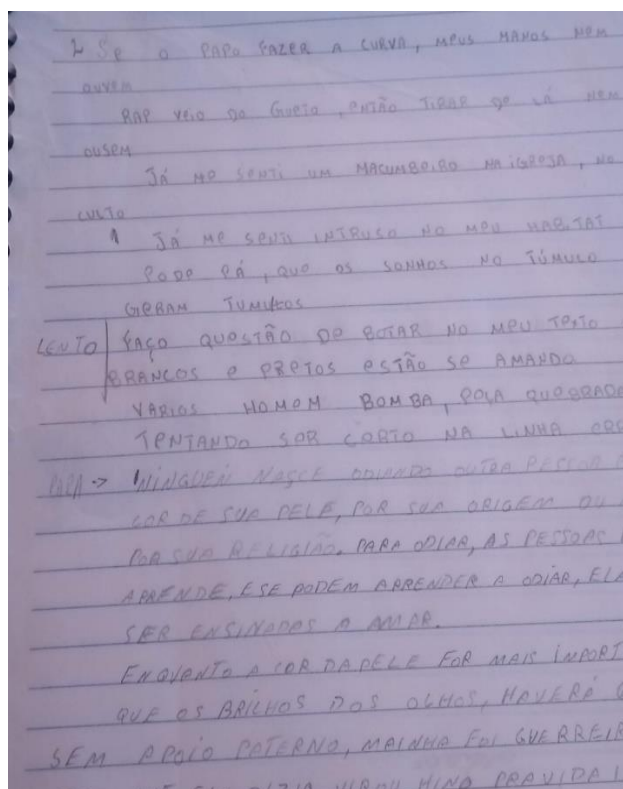 2 Se o PAPO FAZER A CURVA, MEUS MANOS NEM
OUVEM
RAP VEIO DO GUETO, ENTÃO TIRAR DE LÁ NEM
OUSEM
JÁ ME SENTI UM MACUMBEIRO NA IGREJA, NO
CULTO
1 JÁ ME SENTI INTRUSO NO MEU HABITAT
PODE PÁ, QUE OS SONHOS NO TÚMULO
GERAM TUMULTOS
LENTO FAÇO QUESTÃO DE BOTAR NO MEU TEXTO
BRANCOS E PRETOS ESTÃO SE AMANDO
VARIOS HOMEM BOMBA, PELA QUEBRADE
TENTANDO SER CERTO NA LINHA
-> NINGUEN NASCE ODIANDO OUTRA PESSOA
COR DE SUA PELE, POR SUA ORIGEM OU
POR SUA RELIGIÃO. PARA ODIAR, AS PESSOAS
APRENDE, E SE PODEM APRENDER A ODIAR, ELA
SER ENSINADAS A AMAR.
ENQUENTO A COR DA PELE FOR MAIS INPORT
QUE OS BRILHOS DOS OLHOS, HAVERÁ
SEM APOIO PATERNO, MAINHA FOI GUERREIR
VIROU HINO PRA VIDA